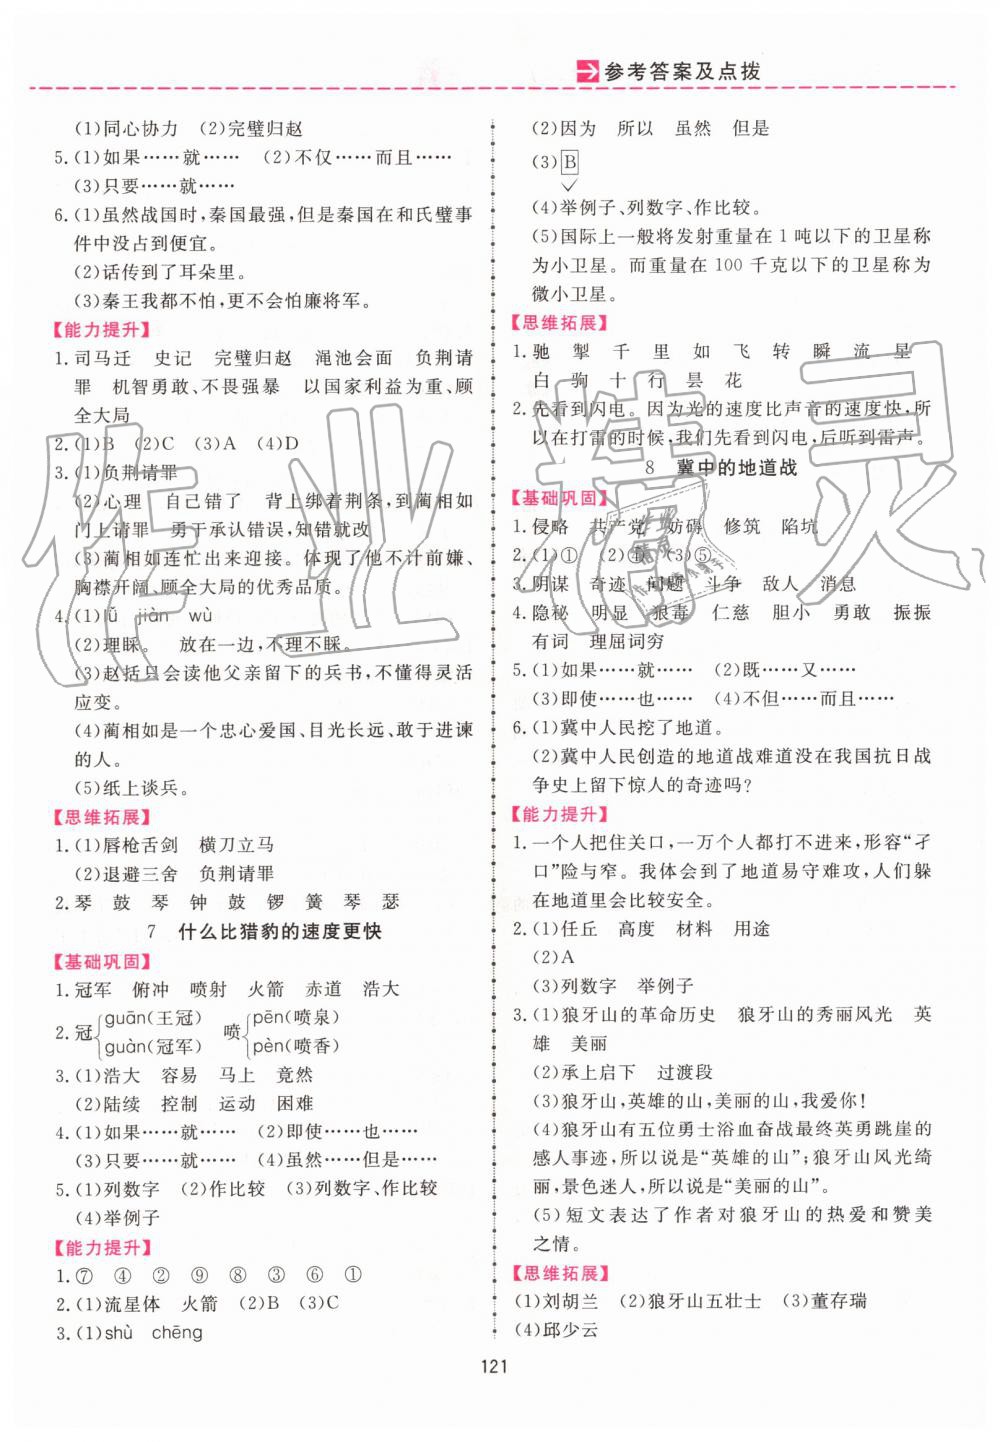 参考答案及点拨
(1)同心协力　(2)完璧归赵
5.(1)如果……就……　(2)不仅……而且……
(3)只要……就……
6.(1)虽然战国时,秦国最强,但是秦国在和氏璧事
件中没占到便宜。
(2)话传到了耳朵里。
(3)秦王我都不怕,更不会怕廉将军。
【能力提升】
1.司马迁　史记　完璧归赵　渑池会面　负荆请
罪　机智勇敢、不畏强暴　以国家利益为重、顾
全大局
2.(1)B　(2)C　(3)A　(4)D
3.(1)负荆请罪
(2)心理　自己错了　背上绑着荆条,到蔺相如
门上请罪　勇于承认错误,知错就改
(3)蔺相如连忙出来迎接。体现了他不计前嫌、
胸襟开阔、顾全大局的优秀品质。
4.(1)lǚ　jiàn　wù
(2)理睬。　放在一边,不理不睬。
(3)赵括只会读他父亲留下的兵书,不懂得灵活
应变。
(4)蔺相如是一个忠心爱国、目光长远、敢于进谏
的人。
(5)纸上谈兵。
【思维拓展】
1.(1)唇枪舌剑　横刀立马
(2)退避三舍　负荆请罪
2.琴　鼓　琴　钟　鼓　锣　簧　琴　瑟
7　什么比猎豹的速度更快
【基础巩固】
1.冠军　俯冲　喷射　火箭　赤道　浩大
2.冠{guān(王冠) guàn(冠军)　喷{pēn(喷泉) pèn(喷香)
3.(1)浩大　容易　马上　竟然
(2)陆续　控制　运动　困难
4.(1)如果……就……　(2)即使……也……
(3)只要……就……　(4)虽然……但是……
5.(1)列数字　(2)作比较　(3)列数字、作比较
(4)举例子
【能力提升】
1.⑦　④　②　⑨　⑧　③　⑥　①
2.(1)流星体　火箭　(2)B　(3)C
3.(1)shù　chēng
(2)因为　所以　虽然　但是
(3)B
✓
(4)举例子、列数字、作比较。
(5)国际上一般将发射重量在1吨以下的卫星称
为小卫星。而重量在100千克以下的卫星称为
微小卫星。
【思维拓展】
1.驰　掣　千　里　如　飞　转　瞬　流　星
白　驹　十　行　昙　花
2.先看到闪电。因为光的速度比声音的速度快,所
以在打雷的时候,我们先看到闪电,后听到雷声。
8　冀中的地道战
【基础巩固】
1.侵略　共产党　妨碍　修筑　陷坑
2.(1)①　(2)④　(3)⑤
3.阴谋　奇迹　问题　斗争　敌人　消息
4.隐秘　明显　狠毒　仁慈　胆小　勇敢　振振
有词　理屈词穷
5.(1)如果……就……　(2)既……又……
(3)即使……也……　(4)不但……而且……
6.(1)冀中人民挖了地道。
(2)冀中人民创造的地道战难道没在我国抗日战
争史上留下惊人的奇迹吗?
【能力提升】
1.一个人把住关口,一万个人都打不进来,形容“孑
口”险与窄。我体会到了地道易守难攻,人们躲
在地道里会比较安全。
2.(1)任丘　高度　材料　用途
(2)A
(3)列数字　举例子
3.(1)狼牙山的革命历史　狼牙山的秀丽风光　英
雄　美丽
(2)承上启下　过渡段
(3)狼牙山,英雄的山,美丽的山,我爱你!
(4)狼牙山有五位勇士浴血奋战最终英勇跳崖的
感人事迹,所以说是“英雄的山”;狼牙山风光绮
丽,景色迷人,所以说是“美丽的山”。
(5)短文表达了作者对狼牙山的热爱和赞美
之情。
【思维拓展】
(1)刘胡兰　(2)狼牙山五壮士　(3)董存瑞
(4)邱少云
121
作业精灵